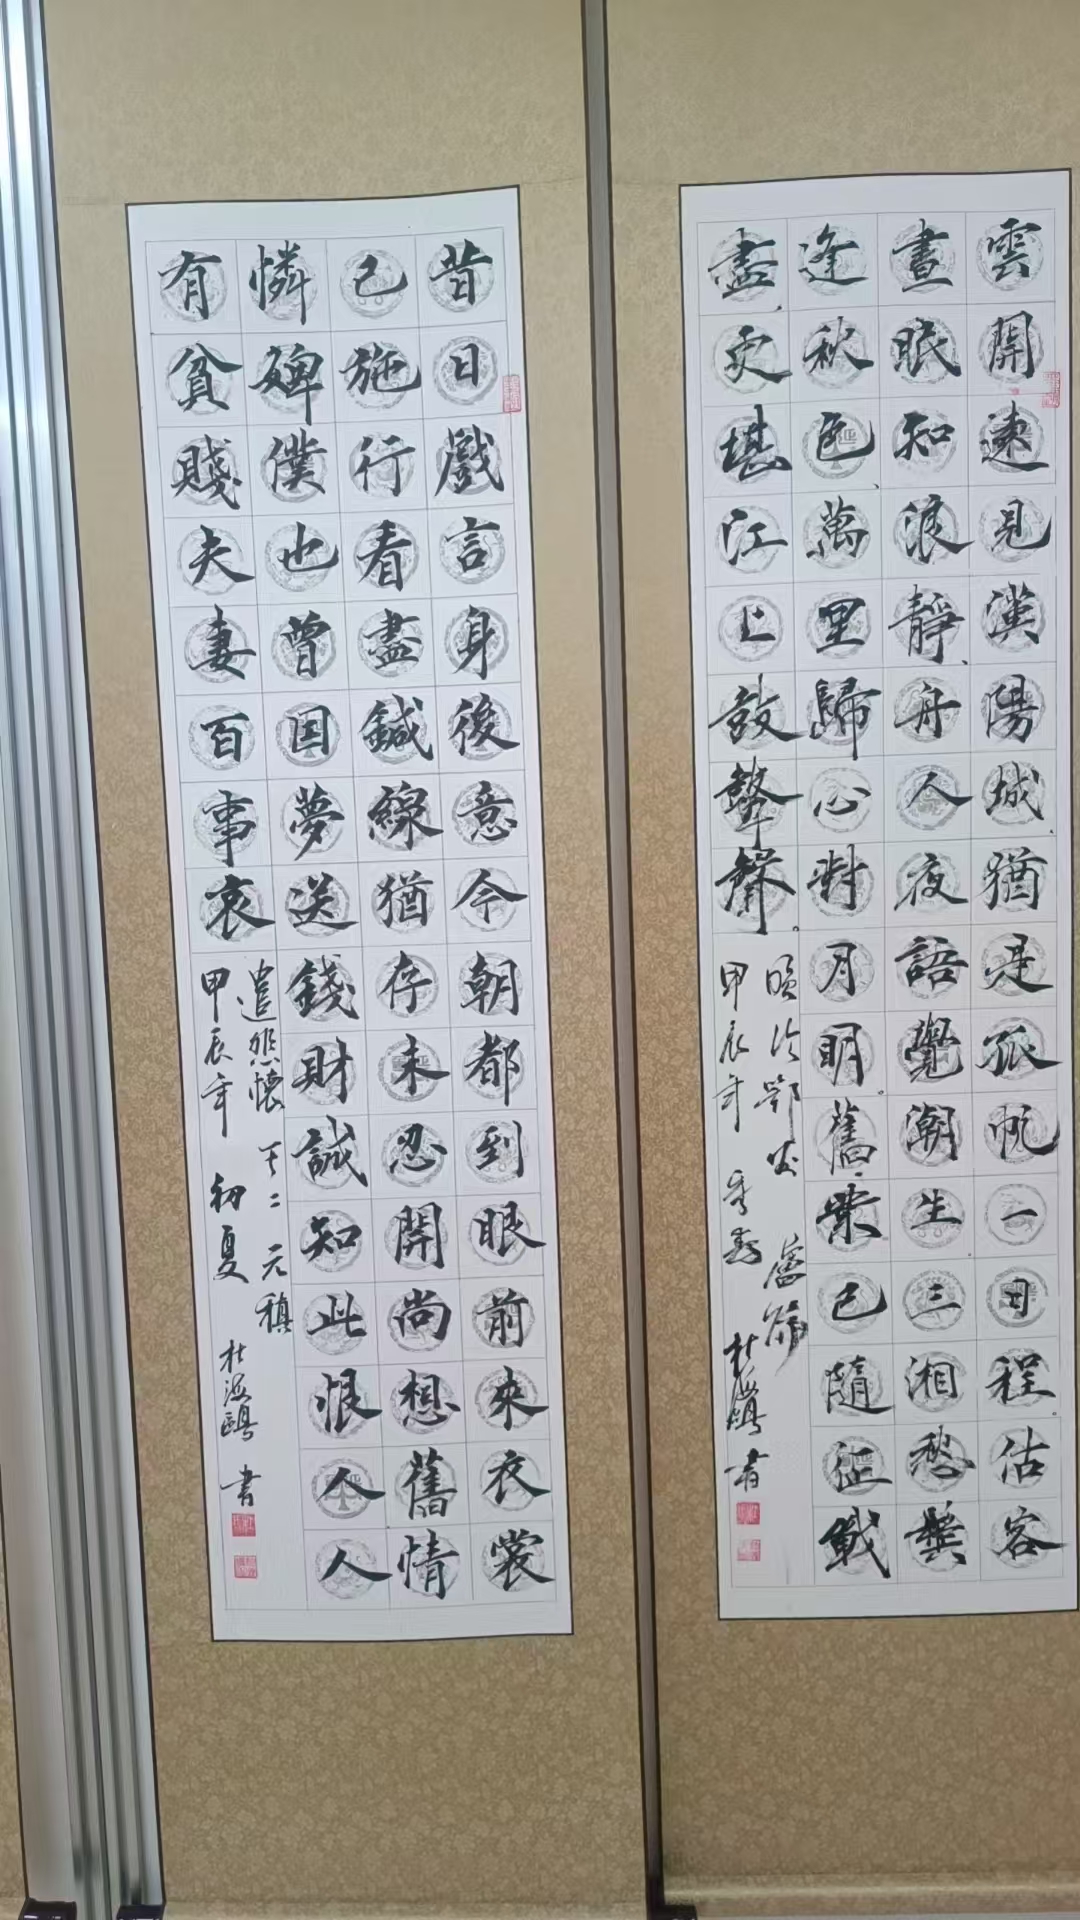 雲開遠見漢陽城猶是孤帆一日程估客
晝眠知浪靜舟人夜語覺潮生三湘愁鬢
逢秋色萬里歸心對月明舊業已隨征戰
盡更堪江上鼓鼙聲
晚次鄂州 盧綸
甲辰年 杜海鷗 書
昔日戲言身後意今朝都到眼前來衣裳
已施行看盡鍼線猶存未忍開尚想舊情
憐婢僕也曾因夢送錢財誠知此恨人人
有貧賤夫妻百事哀
遣悲懷 其二 元稹
甲辰年 初夏 杜海鷗 書